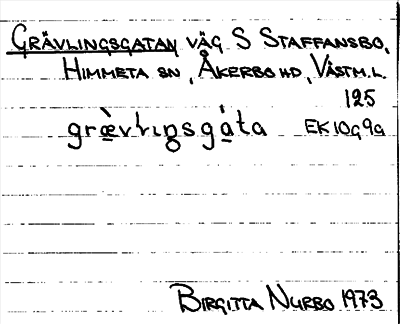 GRÄVLINGSGATAN VÄG S STAFFANSBO,
HIMMETA SN, ÅKERBO HD, VÄSTM.L.
125
græ̀vlıŋsgáta EK10g9a
BIRGITTA NURBO 1973